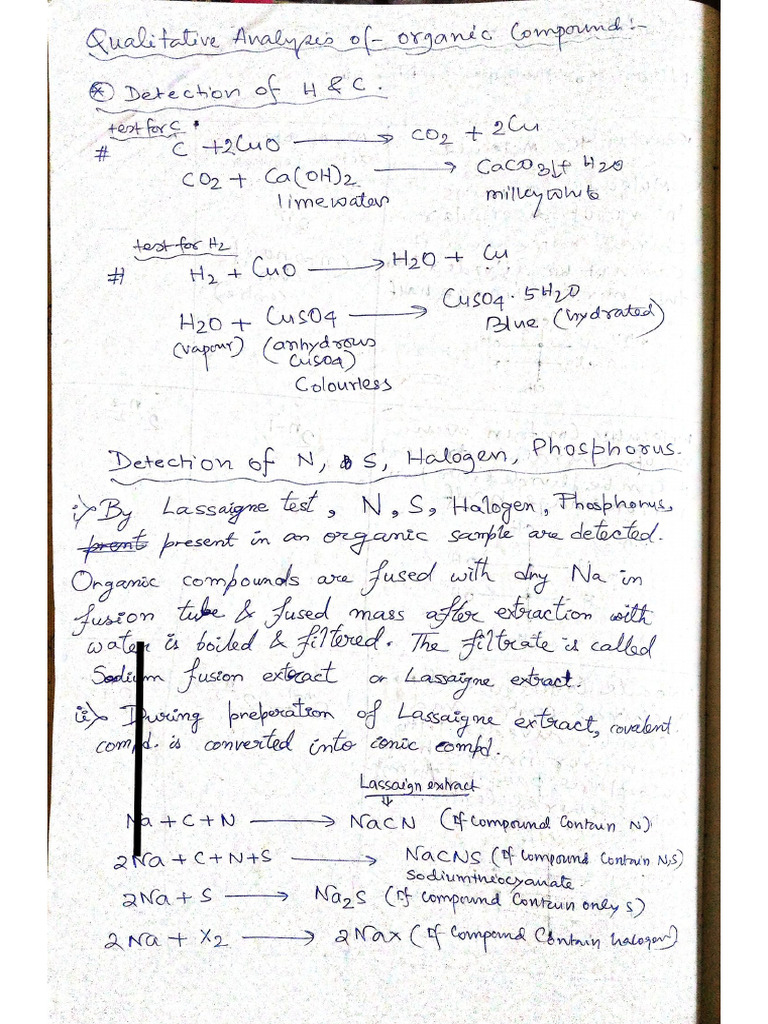 Qualitative Analysis of - organic Compound:-
* Detection of H & C.
test for C
# C + 2CuO → CO2 + 2Cu
CO2 + Ca(OH)2 → CaCO3↓ + H2O
limewater milky white
test for H2
# H2 + CuO → H2O + Cu
H2O + CuSO4 → CuSO4 · 5H2O
(vapour) (anhydrous CuSO4) Blue (hydrated)
Colourless
Detection of N, S, Halogen, Phosphorus.
i) By Lassaigne test, N, S, Halogen, Phosphorus,
present in an organic sample are detected.
Organic compounds are fused with dry Na in
fusion tube & fused mass after extraction with
water is boiled & filtered. The filtrate is called
Sodium fusion extract or Lassaigne extract.
ii) During preparation of Lassaigne extract, covalent
compd. is converted into ionic compd.
Lassaign extract
⇓
Na + C + N → NaCN (If compound contain N)
2Na + C + N + S → NaCNS (If compound contain N,S)
sodiumthiocyanate
2Na + S → Na2S (If compound contain only S)
2Na + X2 → 2Nax (If compound contain halogen)